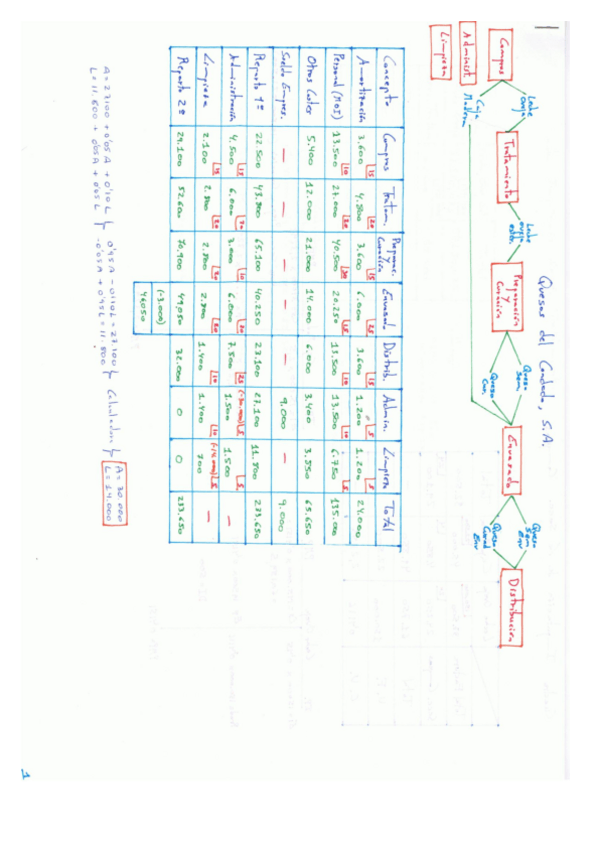 Quesos del Condado, S.A.
Compras Leche oveja Tratamiento Leche oveja ester. Preparación y Curación Queso Sem. Queso Cur. Envasado Queso Sem Env Queso Curad Env Distribución
Administ. Caja Madera
Limpieza
Concepto Compras Tratam. Preparac. y Curación Envasado Distrib. Admin. Limpieza Total
Amortización 3.600 15 4.800 20 3.600 15 6.000 25 3.600 15 1.200 5 1.200 5 24.000
Personal (MOI) 13.500 10 27.000 20 40.500 30 20.250 15 13.500 10 13.500 10 6.750 5 135.000
Otros Costes 5.400 12.000 21.000 14.000 6.000 3.400 3.850 65.650
Sueldo Empres. — — — — — 9.000 — 9.000
Reparto 1º 22.500 43.800 65.100 40.250 23.100 27.100 11.800 233.650
Administración 4.500 15 6.000 20 3.000 10 6.000 20 7.500 25 (-30.000) 1.500 5 1.500 5 —
Limpieza 2.100 15 2.800 20 2.800 20 2.800 20 1.400 10 1.400 10 (-14.000) 700 5 —
Reparto 2º 29.100 52.600 70.900 49.050 32.000 0 0 233.650
(-3.000)
46.050
A = 27.100 + 0'05 A + 0'10 L } 0'95 A - 0'10 L = 27.100 } Calculadora } A = 30.000
L = 11.800 + 0'05 A + 0'05 L } -0'05 A + 0'95 L = 11.800 } L = 14.000
1